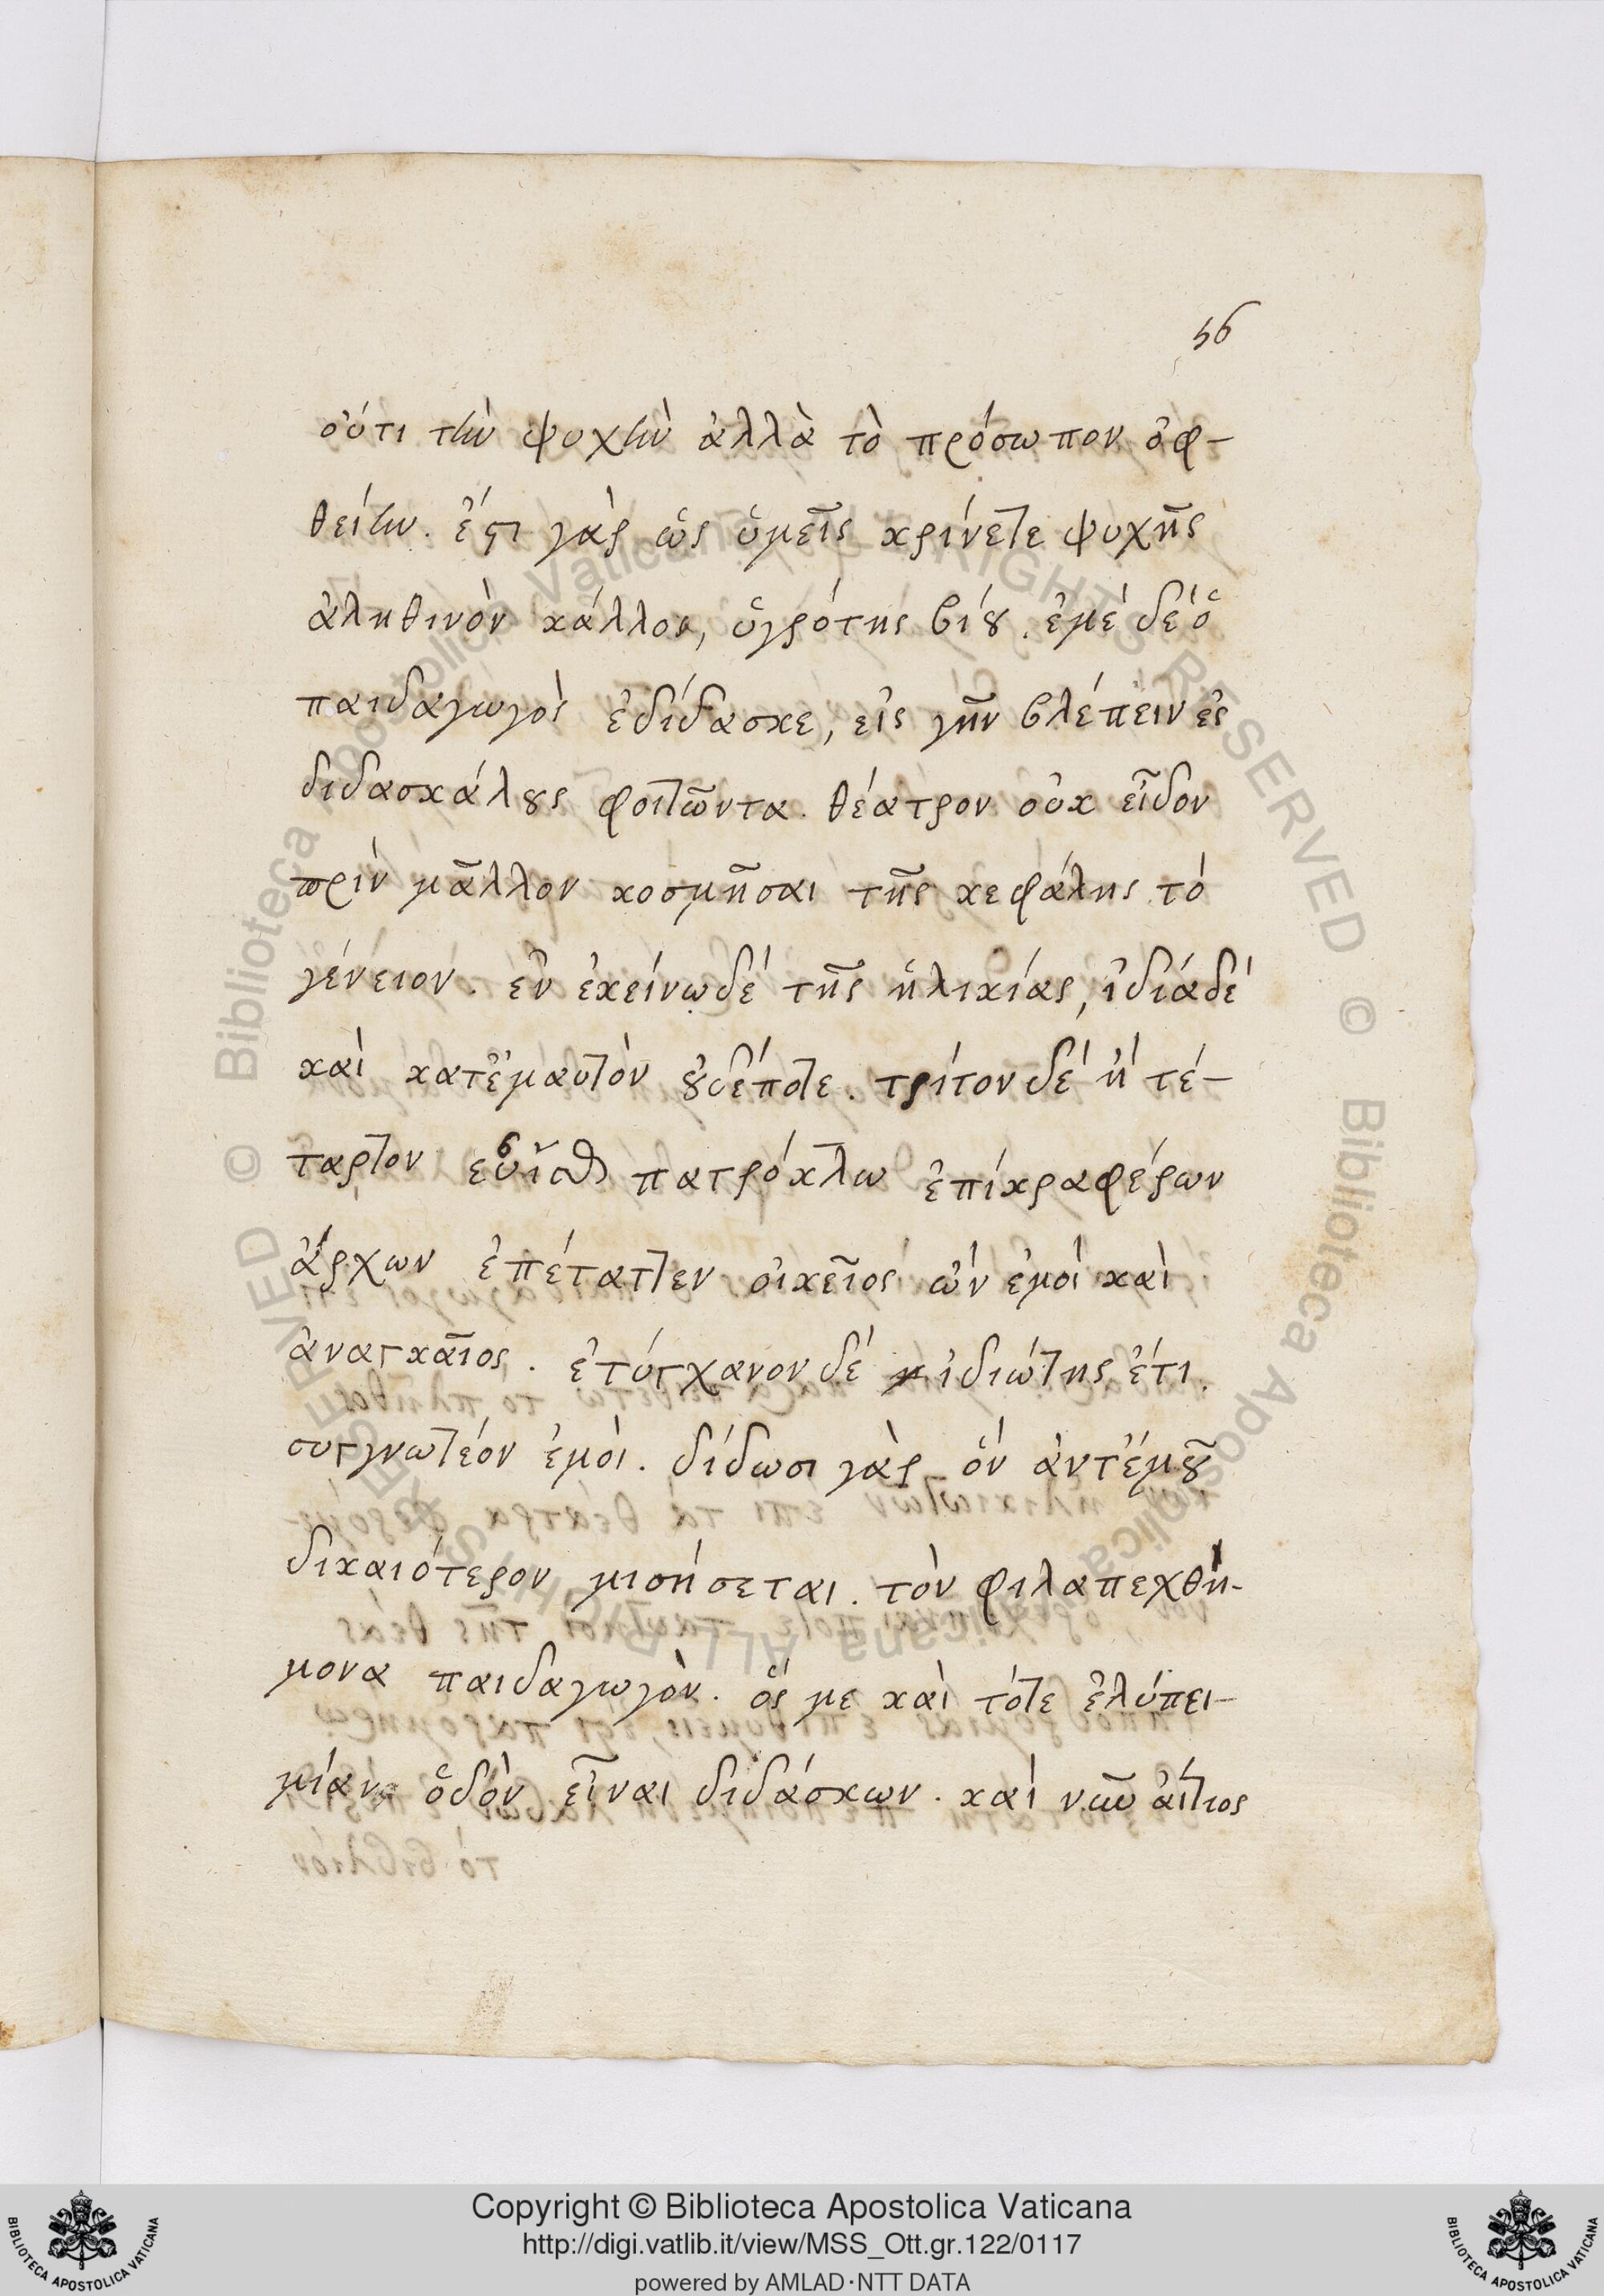 56
οὔτι τὴν ψυχὴν ἀλλὰ τὸ πρόσωπον ὀφ-
θείην. ἔστι γὰρ ὡς ὑμεῖς κρίνετε ψυχῆς
ἀληθινὸν κάλλος, ὑγρότης βίου. ἐμὲ δέ ὁ
παιδαγωγὸς ἐδίδασκε, εἰς γῆν βλέπειν ἐς
διδασκάλους φοιτῶντα. θέατρον οὐκ εἶδον
πρίν μᾶλλον κοσμῆσαι τῆς κεφάλης τό
γένειον. ἐν ἐκείνω δέ τῆς ἡλικίας, ἰδιάδέ
καὶ κατ' ἐμαυτὸν οὐδέποτε. τρίτον δέ ἤ τέ-
ταρτον πατρόκλω ἐπίκραφέρων
ἄρχων ἐπέταττεν οἰκεῖος ὤν ἐμοὶ καὶ
ἀναγκαῖος. ἐτύγχανον δέ ἰδιώτης ἔτι.
συγγνωτέον ἐμοὶ. δίδωσι γὰρ ὅν ἀντ' ἐμοῦ
δικαιότερον μισήσεται. τὸν φιλαπεχθή-
μονα παιδαγωγὸν. ὅς με καὶ τότε ἐλύπει-
μίαν ὁδὸν εἶναι διδάσκων. καὶ νῦν αἴτιος
Copyright © Biblioteca Apostolica Vaticana
http://digi.vatlib.it/view/MSS_Ott.gr.122/0117
powered by AMLAD·NTT DATA
BIBLIOTECA APOSTOLICA VATICANA
BIBLIOTECA APOSTOLICA VATICANA
© Biblioteca Apostolica Vaticana ALL RIGHTS RESERVED © Biblioteca Apostolica Vaticana ALL RIGHTS RESERVED